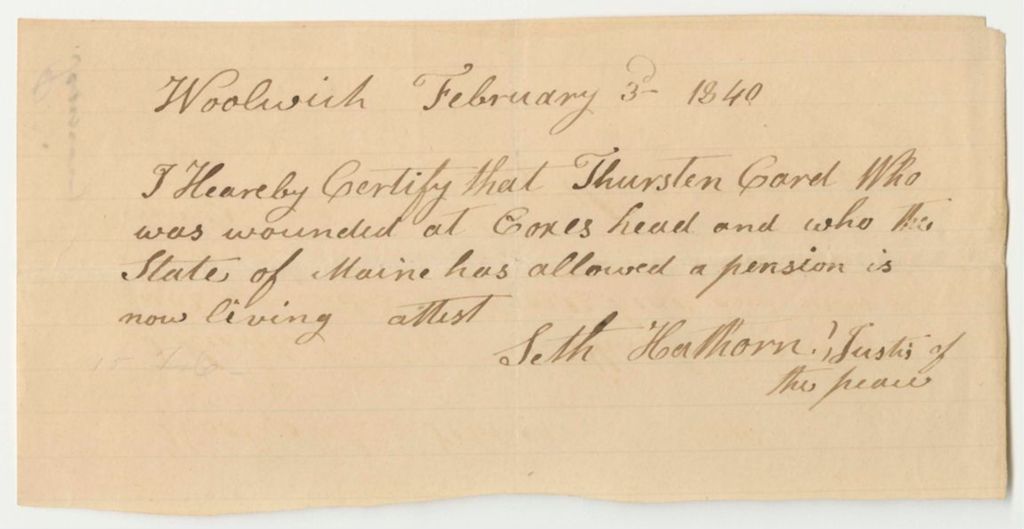 Woolwich February 3d 1840
I Heareby Certify that Thursten Card Who
was wounded at Coxes head and who the
State of Maine has allowed a pension is
now living attest
Seth Hathorn } Justis of
the peace